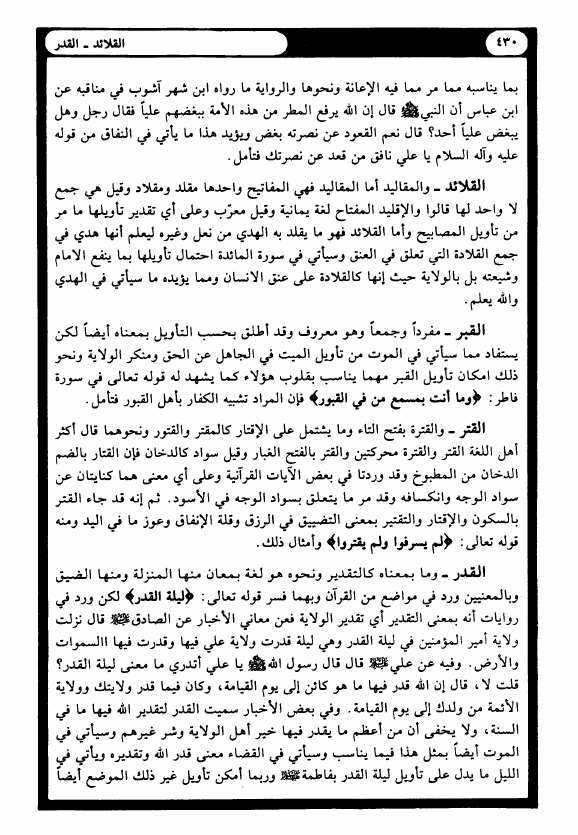 ٤٣٠
القلائد ـ القدر
بما يناسبه مما مر مما فيه الإعانة ونحوها والرواية ما رواه ابن شهر آشوب في مناقبه عن
ابن عباس أن النبي ﷺ قال إن الله يرفع المطر من هذه الأمة ببغضهم علياً فقال رجل وهل
يبغض علياً أحد؟ قال نعم القعود عن نصرته بغض ويؤيد هذا ما يأتي في النفاق من قوله
عليه وآله السلام يا علي نافق من قعد عن نصرتك فتأمل.
القلائد ـ والمقاليد أما المقاليد فهي المفاتيح واحدها مقلد ومقلاد وقيل هي جمع
لا واحد لها قالوا والإقليد المفتاح لغة يمانية وقيل معرّب وعلى أي تقدير تأويلها ما مر
من تأويل المصابيح وأما القلائد فهو ما يقلد به الهدي من نعل وغيره ليعلم أنها هدي في
جمع القلادة التي تعلق في العنق وسيأتي في سورة المائدة احتمال تأويلها بما ينفع الامام
وشيعته بل بالولاية حيث إنها كالقلادة على عنق الانسان ومما يؤيده ما سيأتي في الهدي
والله يعلم.
القبر ـ مفرداً وجمعاً وهو معروف وقد أطلق بحسب التأويل بمعناه أيضاً لكن
يستفاد مما سيأتي في الموت من تأويل الميت في الجاهل عن الحق ومنكر الولاية ونحو
ذلك امكان تأويل القبر مهما يناسب بقلوب هؤلاء كما يشهد له قوله تعالى في سورة
فاطر: ﴿وما أنت بمسمع من في القبور﴾ فإن المراد تشبيه الكفار بأهل القبور فتأمل.
القتر ـ والقترة بفتح التاء وما يشتمل على الإقتار كالمقتر والقتور ونحوهما قال أكثر
أهل اللغة القتر والقترة محركتين والقتر بالفتح الغبار وقيل سواد كالدخان فإن القتار بالضم
الدخان من المطبوخ وقد وردتا في بعض الآيات القرآنية وعلى أي معنى هما كنايتان عن
سواد الوجه وانكسافه وقد مر ما يتعلق بسواد الوجه في الأسود. ثم إنه قد جاء القتر
بالسكون والإقتار والتقتير بمعنى التضييق في الرزق وقلة الإنفاق وعوز ما في اليد ومنه
قوله تعالى: ﴿لم يسرفوا ولم يقتروا﴾ وأمثال ذلك.
القدر ـ وما بمعناه كالتقدير ونحوه هو لغة بمعان منها المنزلة ومنها الضيق
وبالمعنيين ورد في مواضع من القرآن وبهما فسر قوله تعالى: ﴿ليلة القدر﴾ لكن ورد في
روايات أنه بمعنى التقدير أي تقدير الولاية فعن معاني الأخبار عن الصادق قال نزلت
ولاية أمير المؤمنين في ليلة القدر وهي ليلة قدرت ولاية علي فيها وقدرت فيها االسموات
والأرض. وفيه عن علي قال قال رسول الله ﷺ يا علي أتدري ما معنى ليلة القدر؟
قلت لا، قال إن الله قدر فيها ما هو كائن إلى يوم القيامة، وكان فيما قدر ولايتك وولاية
الأئمة من ولدك إلى يوم القيامة. وفي بعض الأخبار سميت القدر لتقدير الله فيها ما في
السنة، ولا يخفى أن من أعظم ما يقدر فيها خير أهل الولاية وشر غيرهم وسيأتي في
الموت أيضاً بمثل هذا فيما يناسب وسيأتي في القضاء معنى قدر الله وتقديره ويأتي في
الليل ما يدل على تأويل ليلة القدر بفاطمة وربما أمكن تأويل غير ذلك الموضع أيضاً